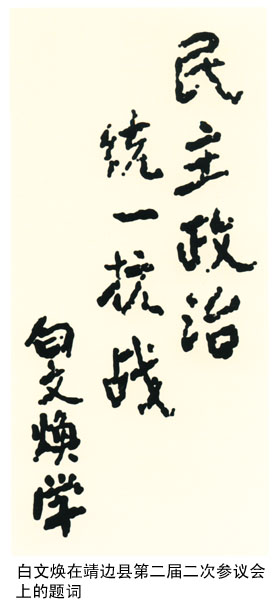 民主政治
统一抗战
白文焕学
白文焕在靖边县第二届二次参议会
上的题词